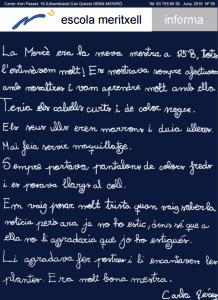 Carrer d'en Passet, 15 (Urbanització Can Quirze) 08304 MATARÓ. Tel. 93 755 88 50 Juny, 2010 Nº 39
escola meritxell informa
La Mercè era la meva mestra a P5B, tots
l'estimàvem molt! Ens mostrava sempre afectuosa
amb nosaltres i vam aprendre molt amb ella.
Tenia els cabells curts i de color negre.
Els seus ulls eren marrons i duia ulleres.
Mai feia servir maquillatge.
Sempre portava pantalons de colors freds
i es posava llarg al coll.
Em vaig posar molt trista quan vaig saber la
notícia però ara ja no ho estic, doncs sé que a
ella no li agradaria que jo ho estigués.
Li agradava fer pastes i li encantaven les
plantes. Era molt bona mestra.
Carla Pérez